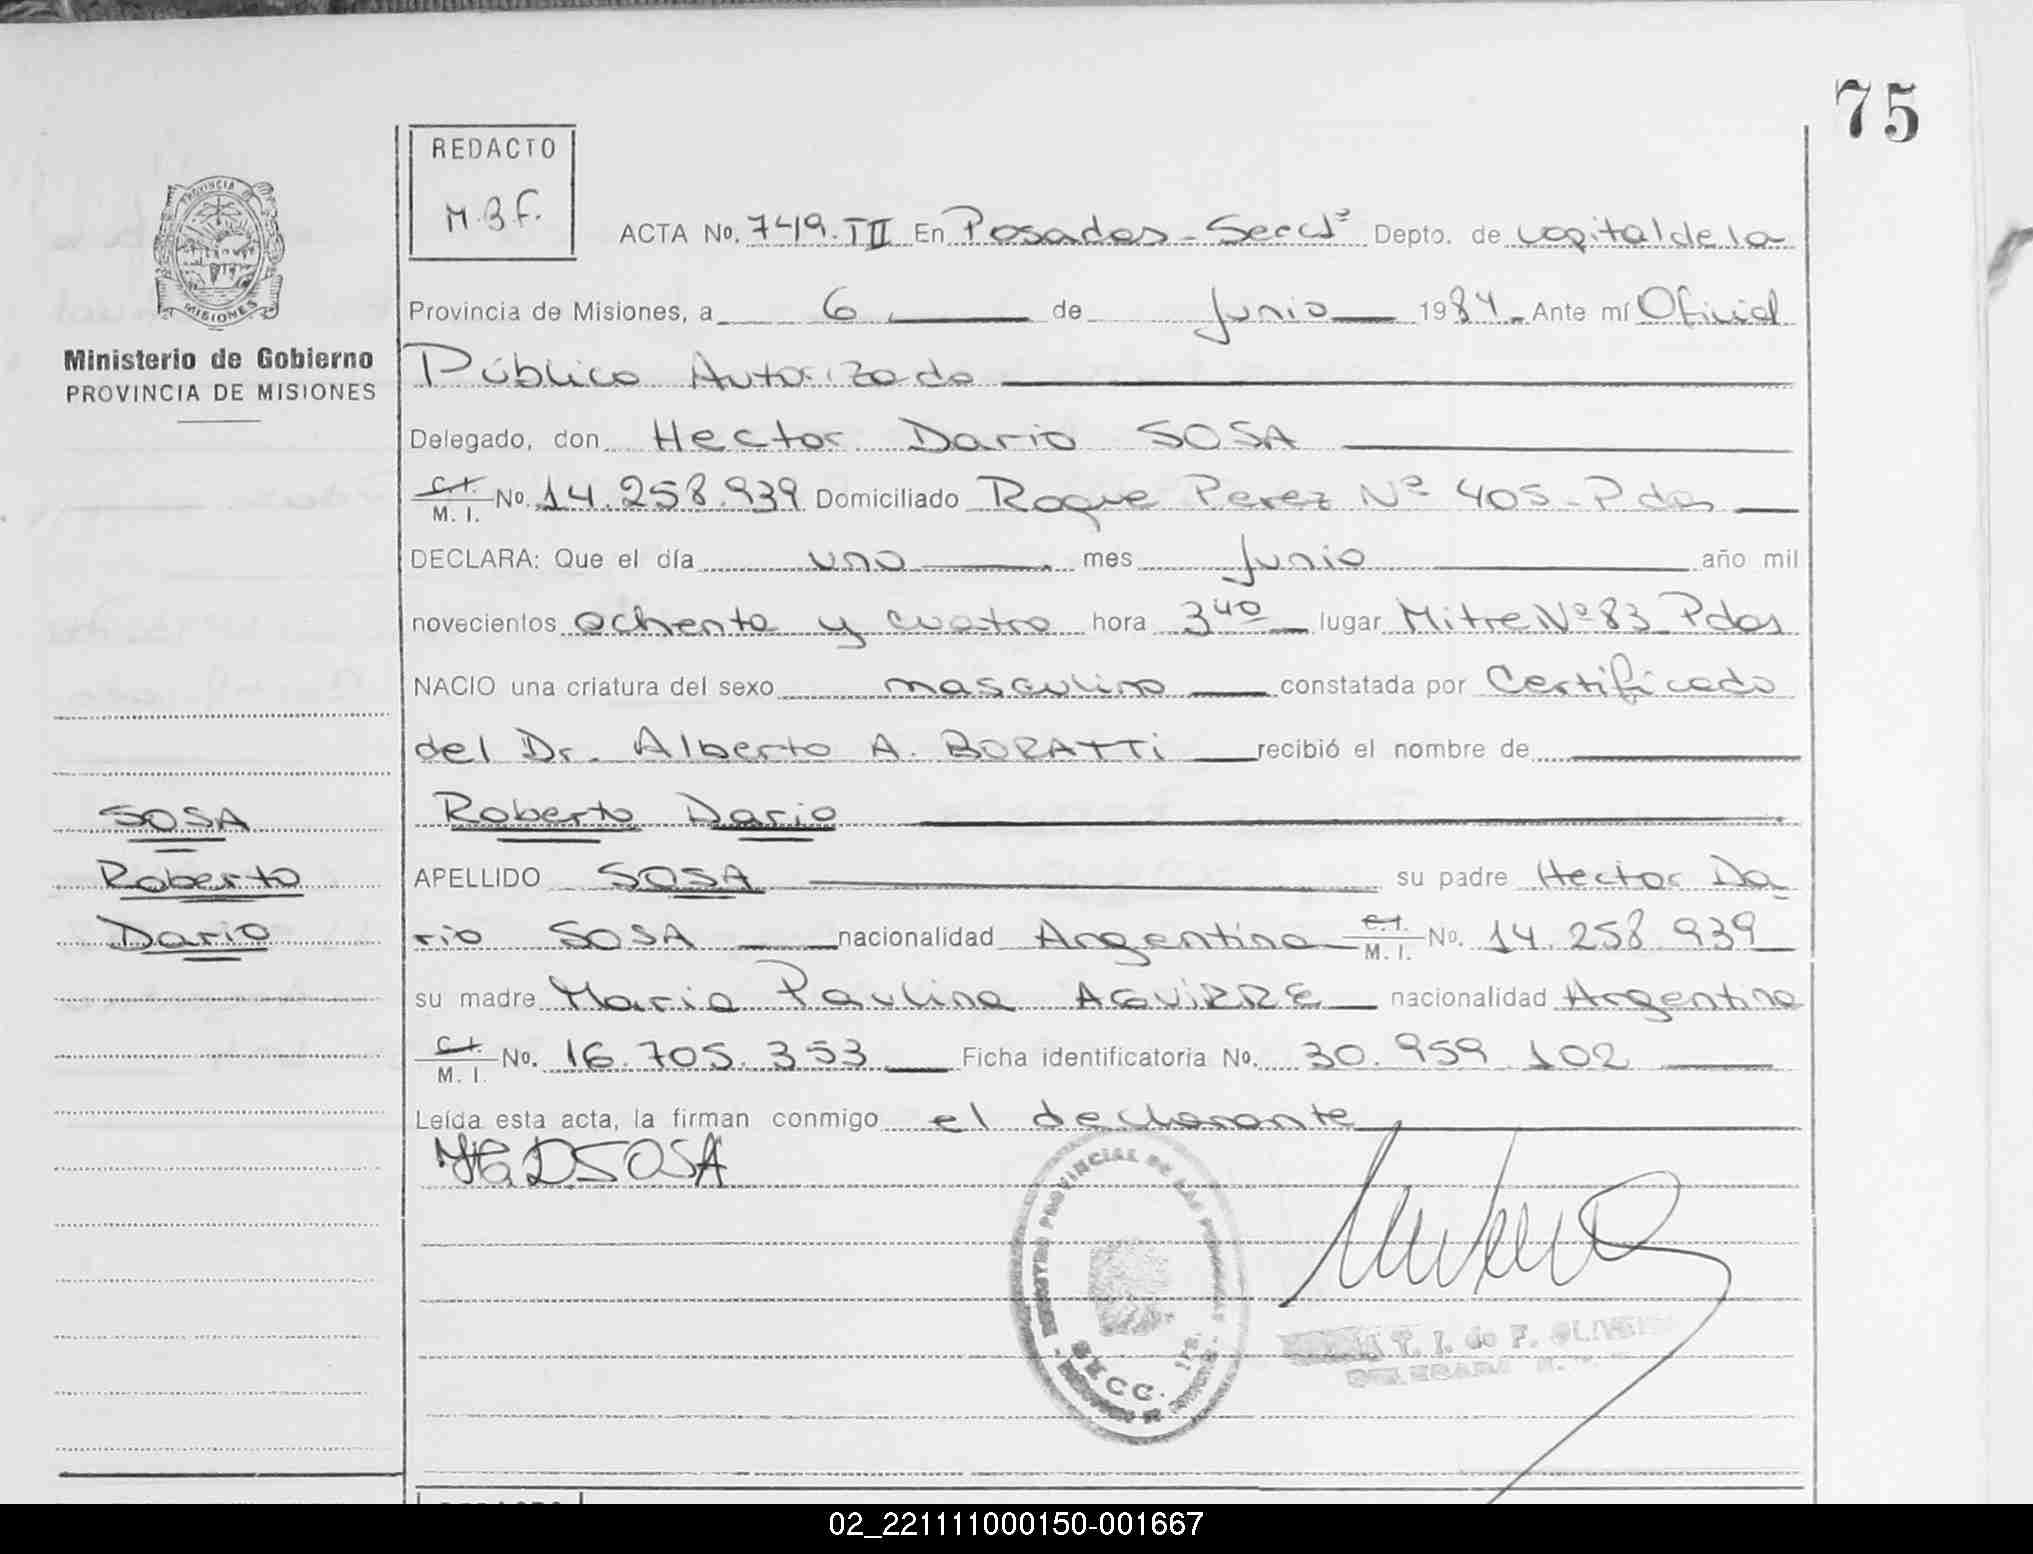 75
REDACTO
M.B.F.
PROVINCIA DE
MISIONES
Ministerio de Gobierno
PROVINCIA DE MISIONES
ACTA No. 749.III En Posadas - Secc 1ª Depto. de Capital de la
Provincia de Misiones, a 6 de Junio 1984 Ante mí Oficial
Público Autorizado
Delegado, don Hector Dario SOSA
C.I. M. I. No. 14.258.939 Domiciliado Roque Perez Nº 405 - Pdas
DECLARA: Que el día uno mes Junio año mil
novecientos ochenta y cuatro hora 3 40 lugar Mitre Nº 83 Pdas
NACIO una criatura del sexo masculino constatada por Certificado
del Dr. Alberto A. BORATTi recibió el nombre de
Roberto Dario
APELLIDO SOSA su padre Hector Da
rio SOSA nacionalidad Argentina C.I. M. I. No. 14.258.939
su madre Maria Paulina AGUiRRE nacionalidad Argentina
C.I. M. I. No. 16.705.353 Ficha identificatoria No. 30.959.102
Leída esta acta, la firman conmigo el declarante
SOSA
Roberto
Dario
HDSOSA
REGISTRO PROVINCIAL DE LAS PERSONAS
SECC. 1ra.
T. I. de F. OLIVEIRA
DELEGADA
02_221111000150-001667